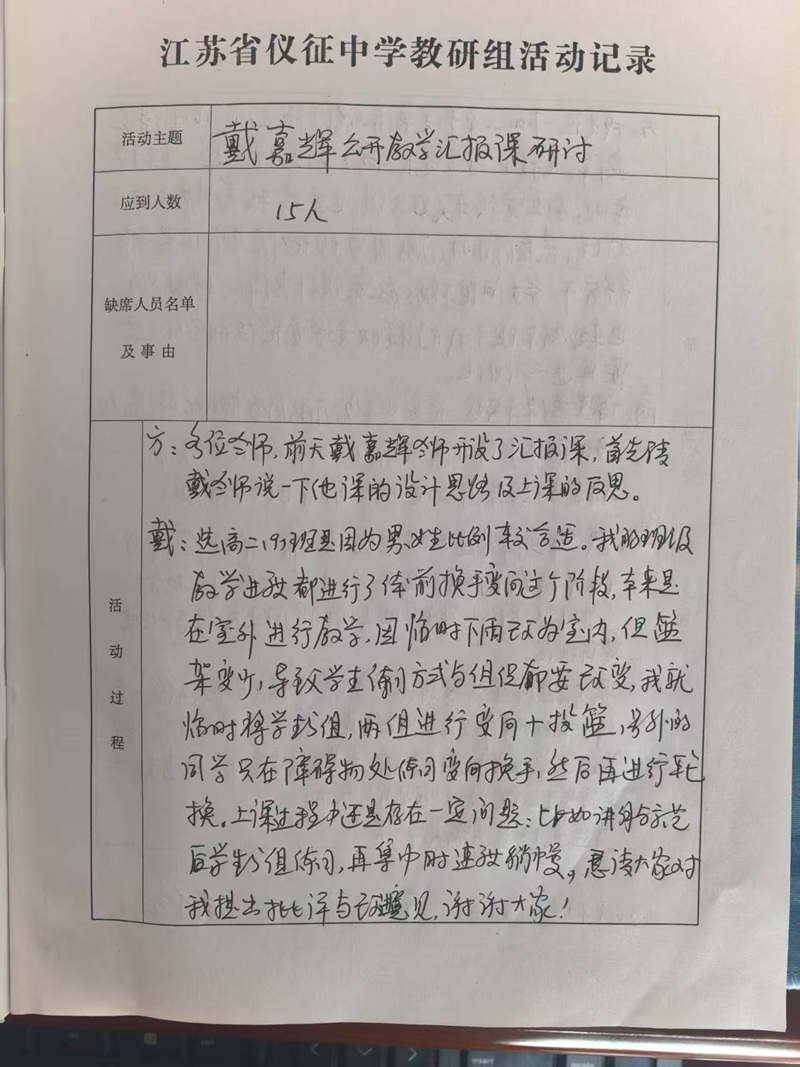 江苏省仪征中学教研组活动记录
活动主题
戴嘉辉公开教学汇报课研讨
应到人数
15人
缺席人员名单
及事由
活动过程
方：各位老师，前天戴嘉辉老师开设了汇报课，首先请
戴老师说一下他课的设计思路及上课的反思。
戴：选高二(9)班是因为男女生比例较合适。我的班级
教学进度都进行了体前换手变向这个阶段，本来是
在室外进行教学，因临时下雨改为室内，但篮
架变少，导致学生练习方式与组织都要改变，我就
临时将学生分组，两组进行变向+投篮，另外的
同学只在障碍物处练习变向换手，然后再进行轮
换。上课过程中还是存在一定问题：比如讲解示范
后学生分组练习，再集中时速度稍慢，恳请大家对
我提出批评与改进意见，谢谢大家！